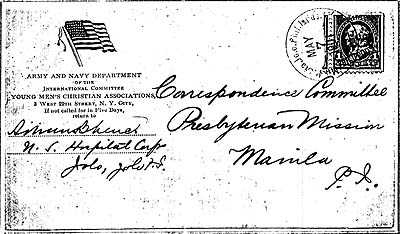 ARMY AND NAVY DEPARTMENT
OF THE
INTERNATIONAL COMMITTEE
YOUNG MEN'S CHRISTIAN ASSOCIATIONS,
3 WEST 29TH STREET, N. Y. CITY,
If not called for in Five Days,
return to
U. S. Hospital Corp
Jolo, Jolo P.I.
MAY
7
Correspondence Committee
Presbyterian Mission
Manila
P. I.